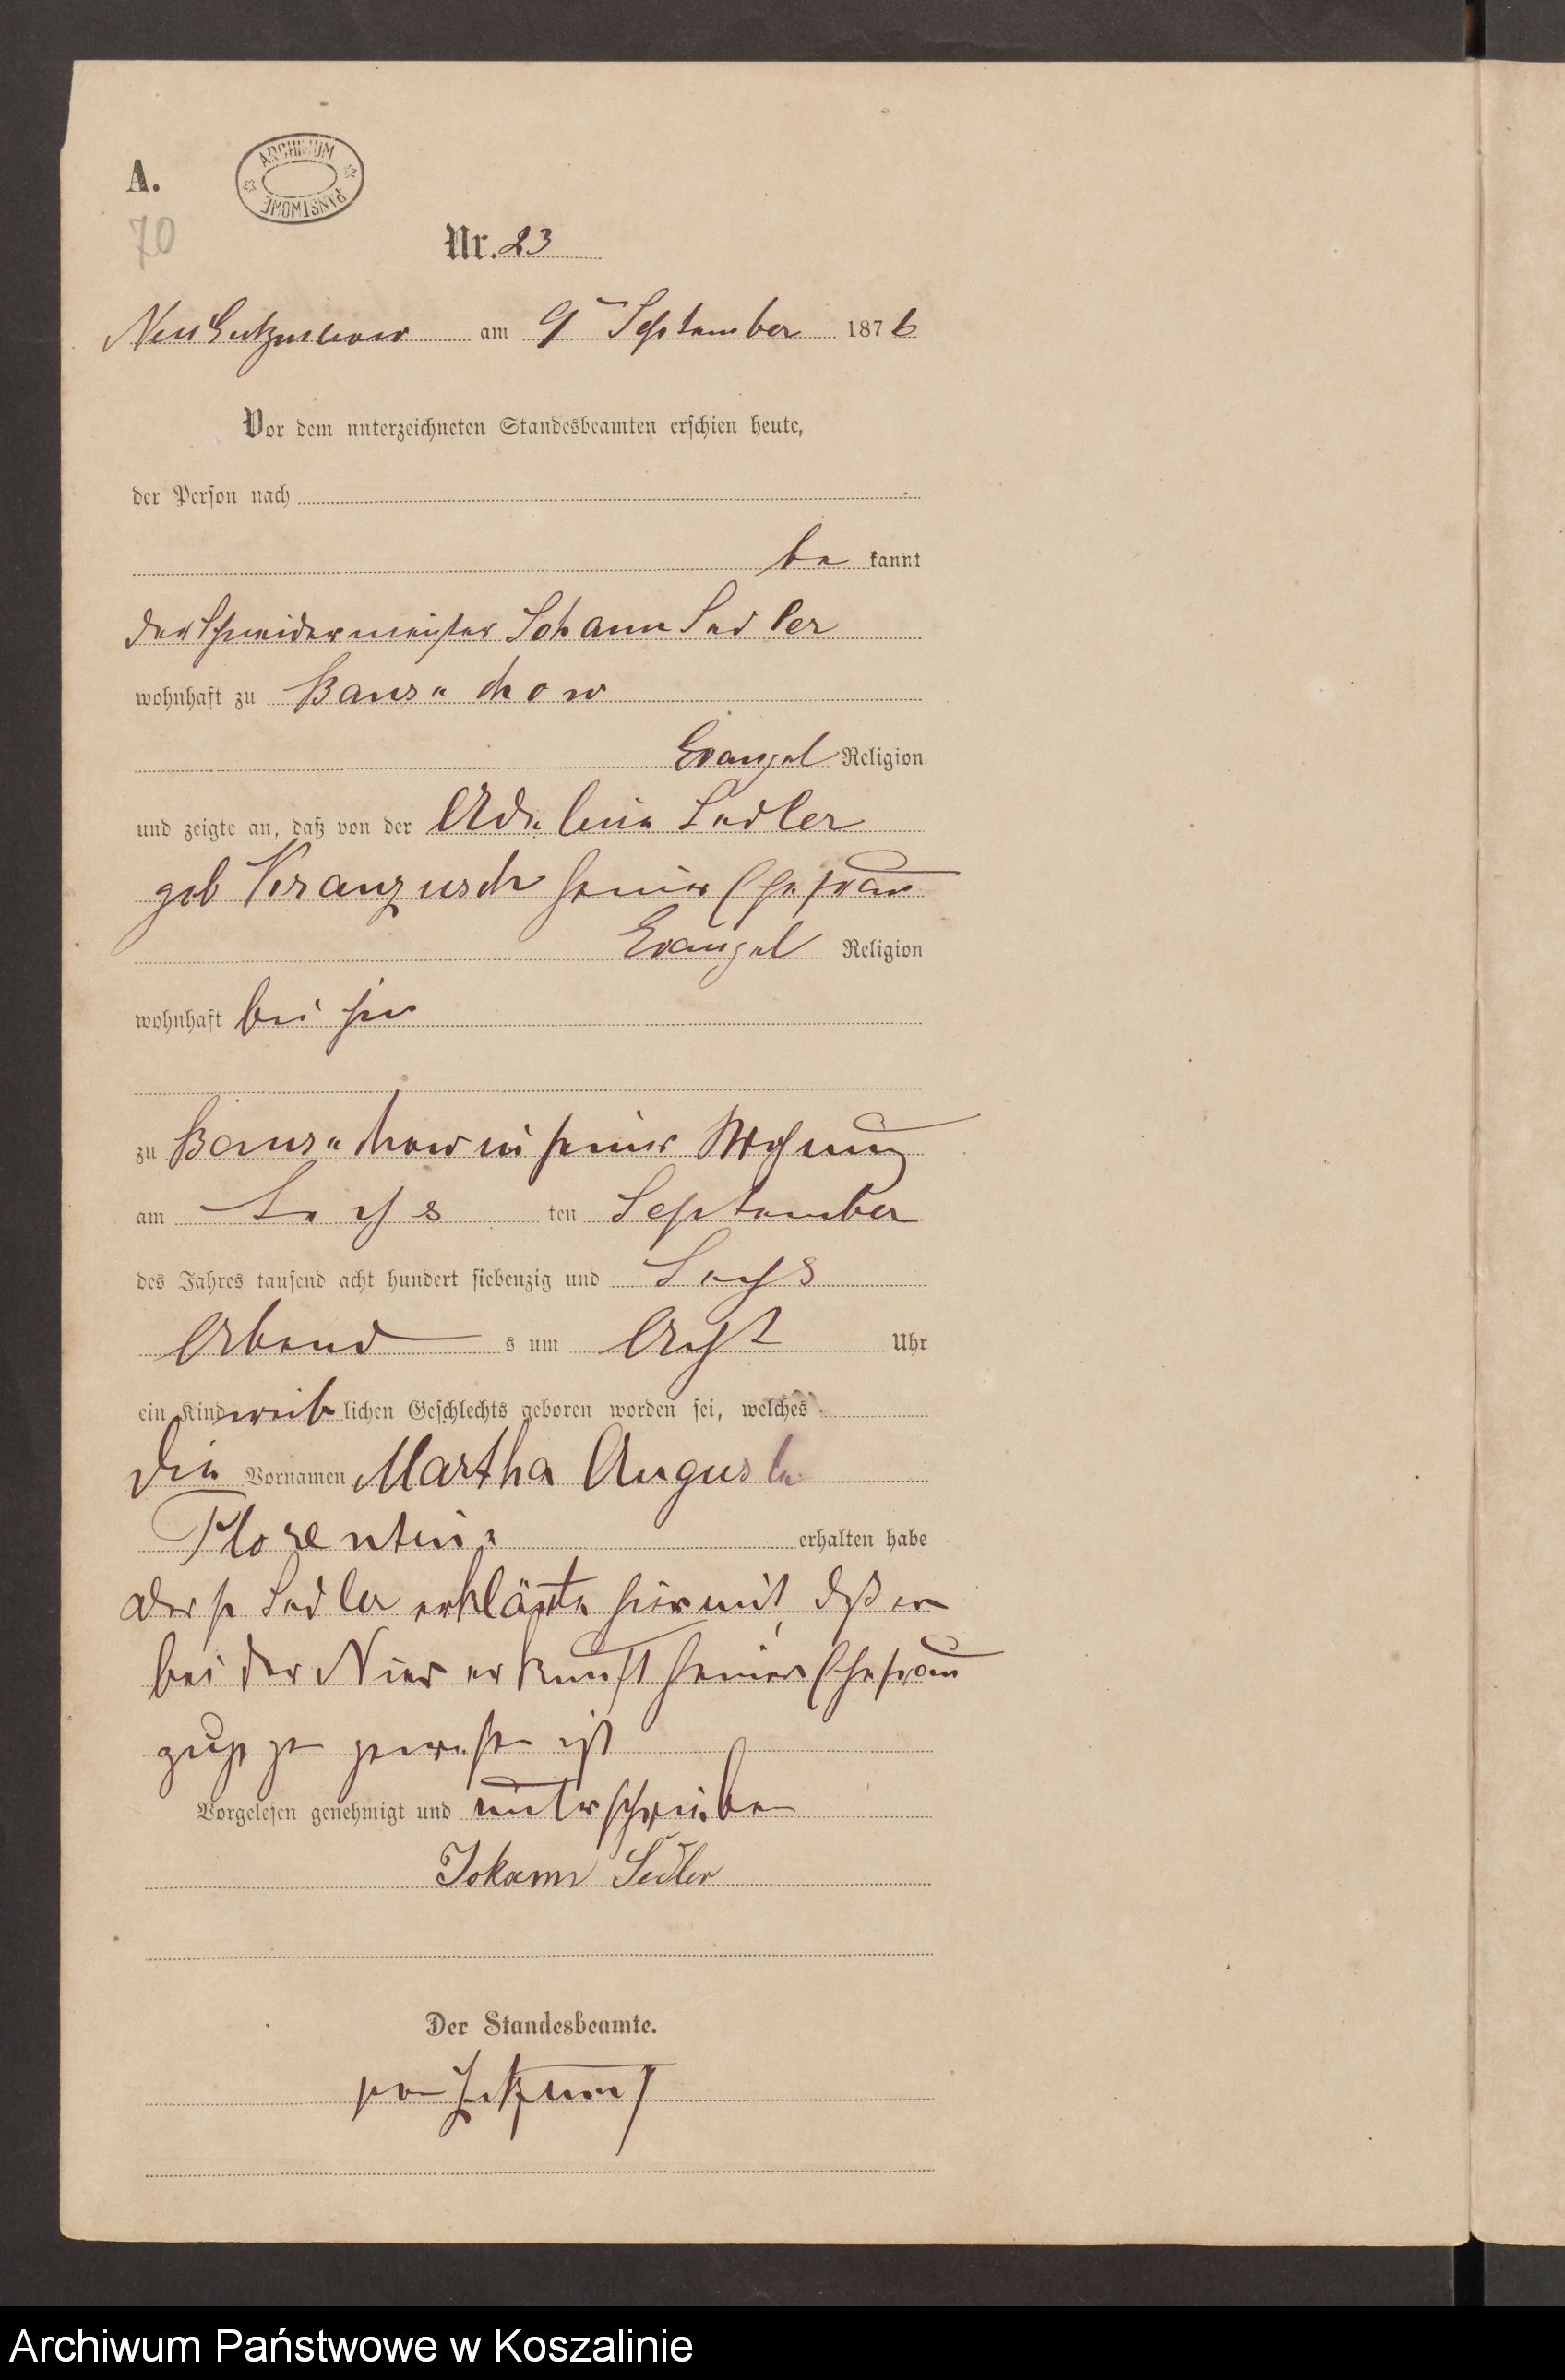 A.
ARCHIWUM PAŃSTWOWE
70
Nr. 23
am 9 September 1876
Vor dem unterzeichneten Standesbeamten erschien heute,
der Person nach
be kannt
der Schneidermeister Johann Sedler
wohnhaft zu
Evangel Religion
und zeigte an, daß von der Adeline Sedler
geb Kranzusch seiner Ehefrau
Evangel Religion
wohnhaft bei ihm
zu in seiner Wohnung
am Sechs ten September
des Jahres tausend acht hundert siebenzig und Sechs
Abend s um Acht Uhr
ein Kind weib lichen Geschlechts geboren worden sei, welches
die Vornamen Martha Auguste
Florentine erhalten habe
Sedler erklärte hiermit, daß er
bei der Niederkunft seiner Ehefrau
zugegen gewesen ist
Vorgelesen genehmigt und unterschrieben
Johann Sedler
Der Standesbeamte.
Archiwum Państwowe w Koszalinie